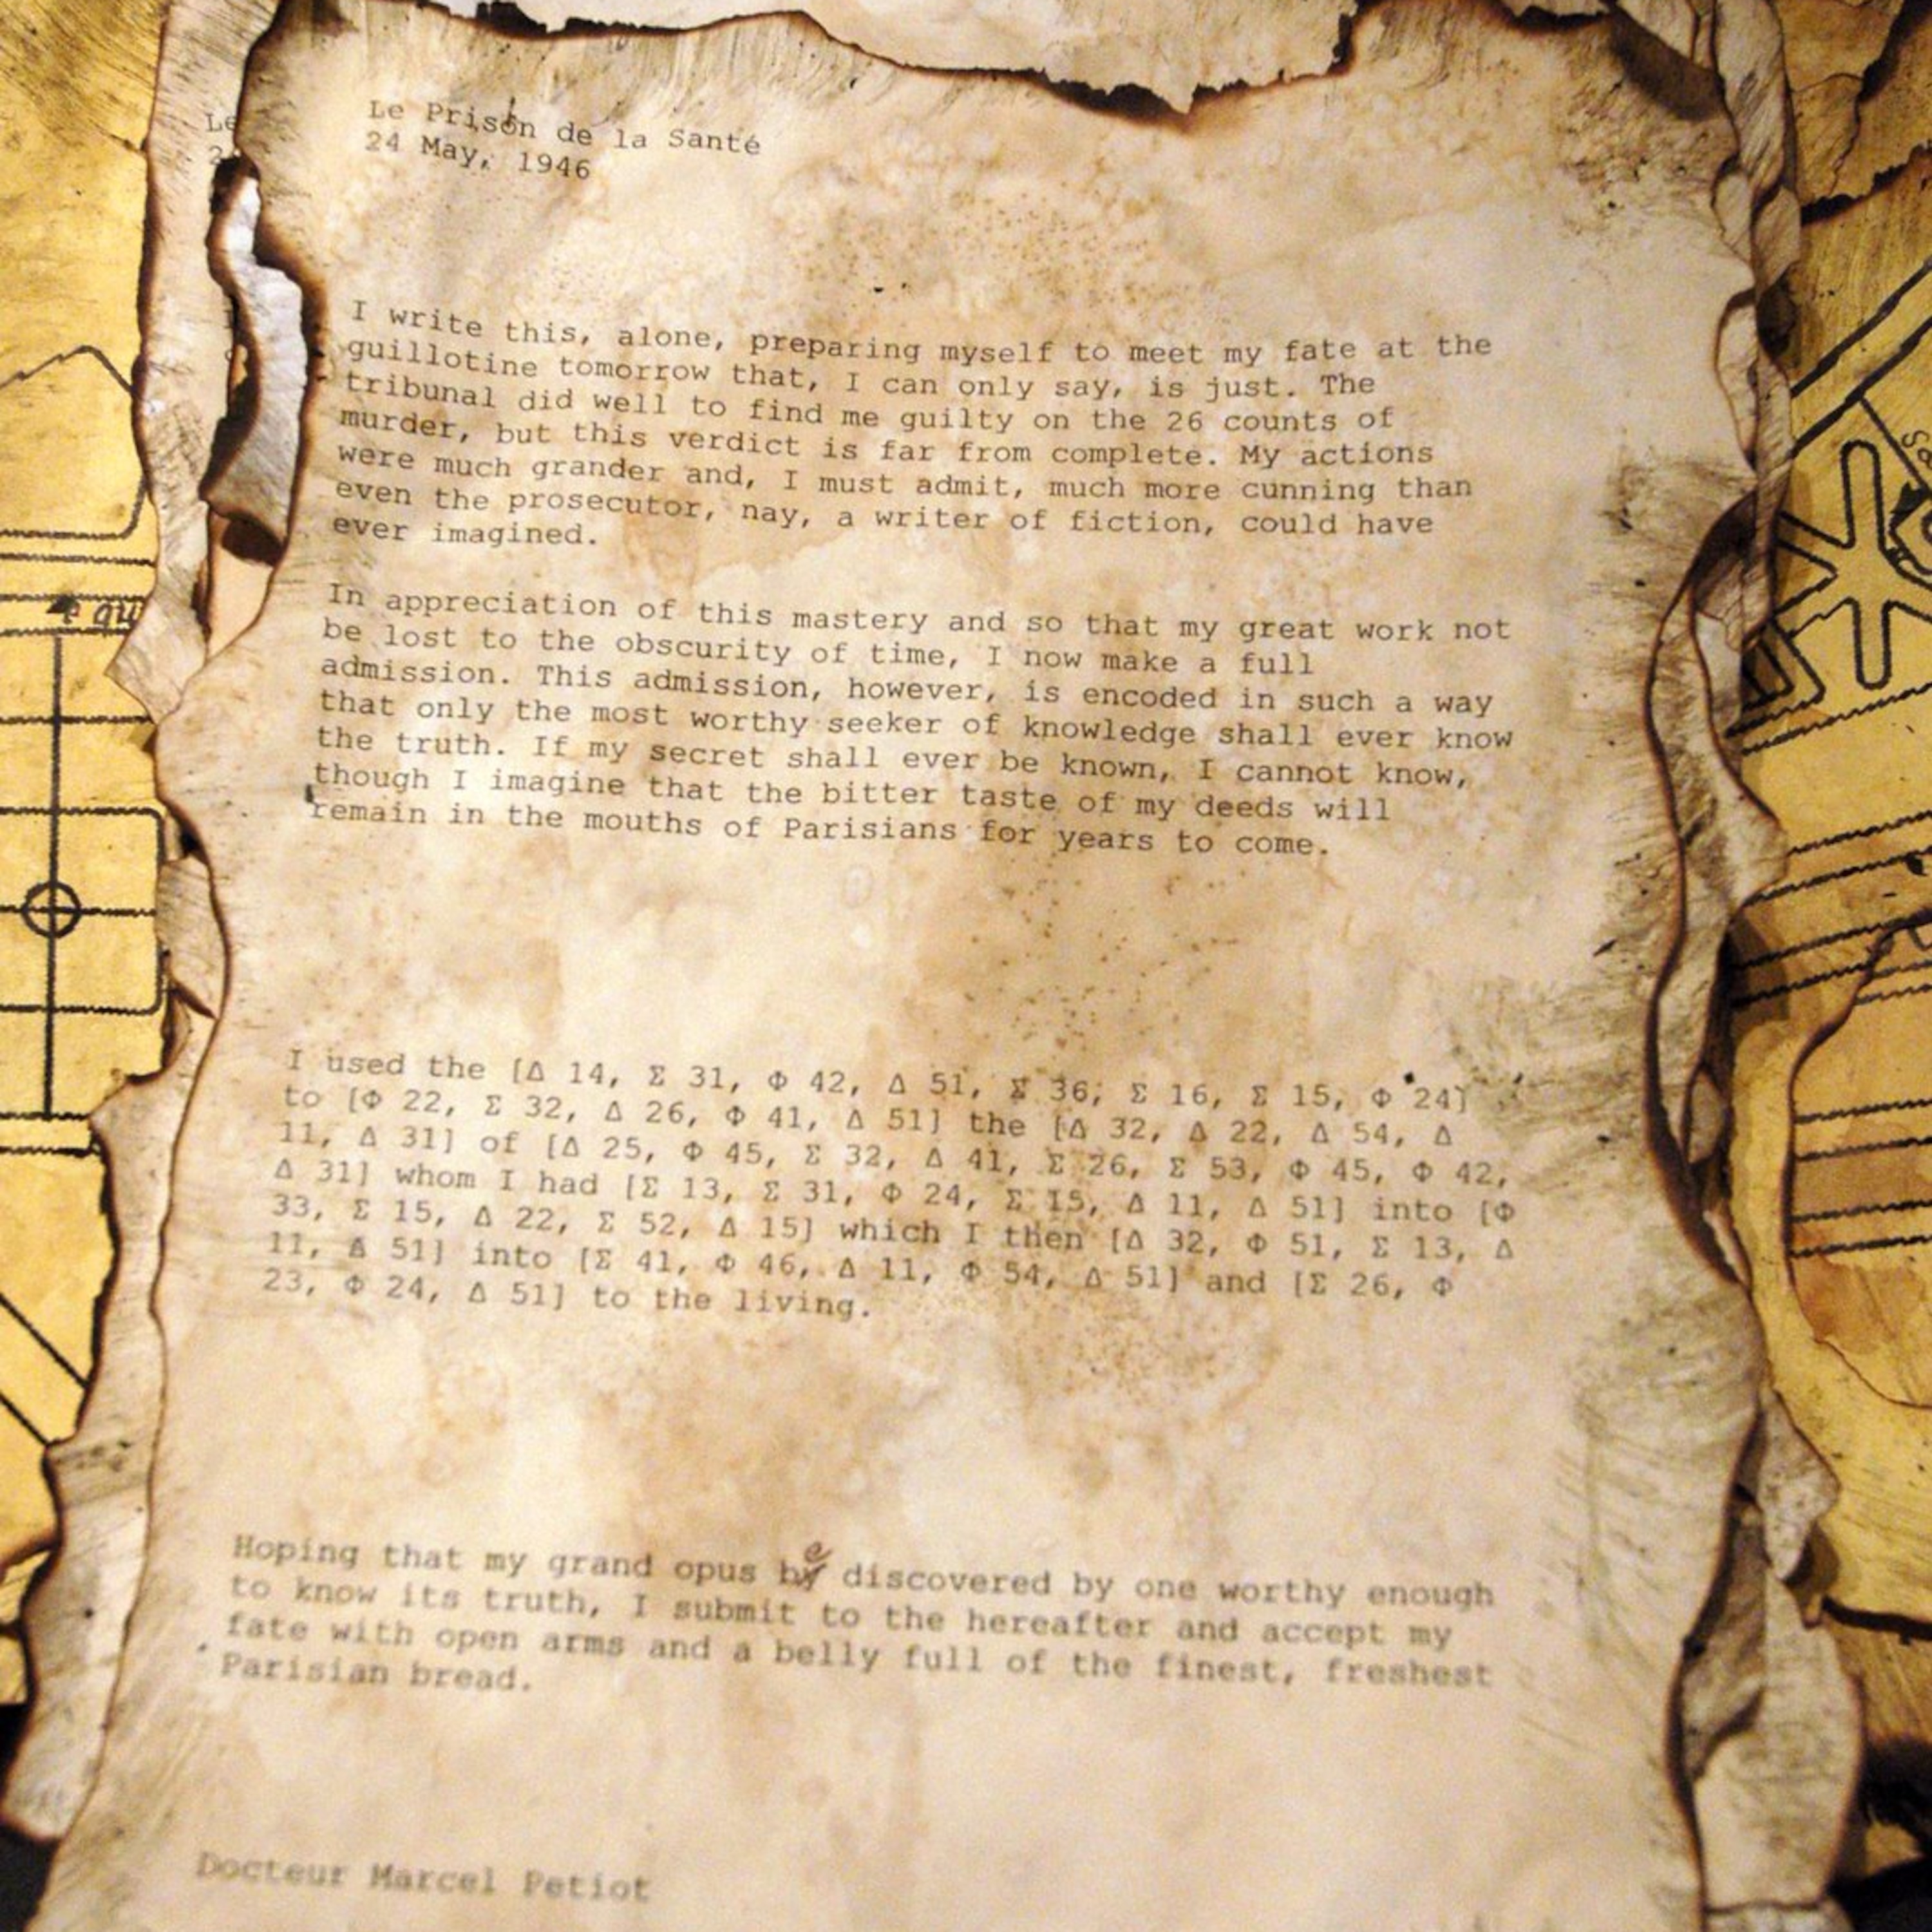 Le Prison de la Santé
24 May, 1946
I write this, alone, preparing myself to meet my fate at the
guillotine tomorrow that, I can only say, is just. The
tribunal did well to find me guilty on the 26 counts of
murder, but this verdict is far from complete. My actions
were much grander and, I must admit, much more cunning than
even the prosecutor, nay, a writer of fiction, could have
ever imagined.
In appreciation of this mastery and so that my great work not
be lost to the obscurity of time, I now make a full
admission. This admission, however, is encoded in such a way
that only the most worthy seeker of knowledge shall ever know
the truth. If my secret shall ever be known, I cannot know,
though I imagine that the bitter taste of my deeds will
remain in the mouths of Parisians for years to come.
I used the [Δ 14, Σ 31, Φ 42, Δ 51, Σ 36, Σ 16, Σ 15, Φ 24]
to [Φ 22, Σ 32, Δ 26, Φ 41, Δ 51] the [Δ 32, Δ 22, Δ 54, Δ
11, Δ 31] of [Δ 25, Φ 45, Σ 32, Δ 41, Σ 26, Σ 53, Φ 45, Φ 42,
Δ 31] whom I had [Σ 13, Σ 31, Φ 24, Σ 15, Δ 11, Δ 51] into [Φ
33, Σ 15, Δ 22, Σ 52, Δ 15] which I then [Δ 32, Φ 51, Σ 13, Δ
11, Δ 51] into [Σ 41, Φ 46, Δ 11, Φ 54, Δ 51] and [Σ 26, Φ
23, Φ 24, Δ 51] to the living.
Hoping that my grand opus be discovered by one worthy enough
to know its truth, I submit to the hereafter and accept my
fate with open arms and a belly full of the finest, freshest
Parisian bread.
Docteur Marcel Petiot
Le
e qu